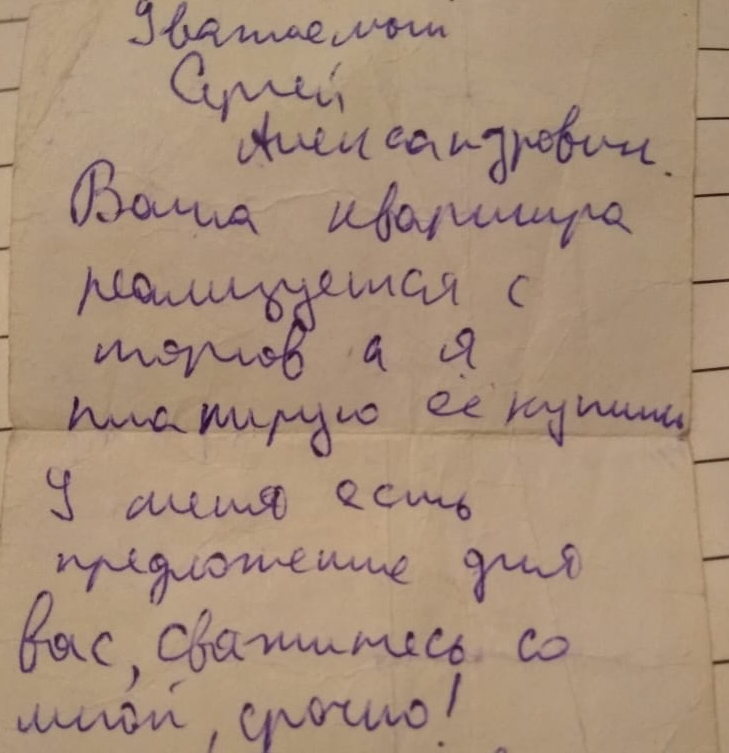 Уважаемый
Сергей
Александрович.
Ваша квартира
реализуется с
торгов а я
планирую её купить
У меня есть
предложение для
вас, свяжитесь со
мной, срочно!